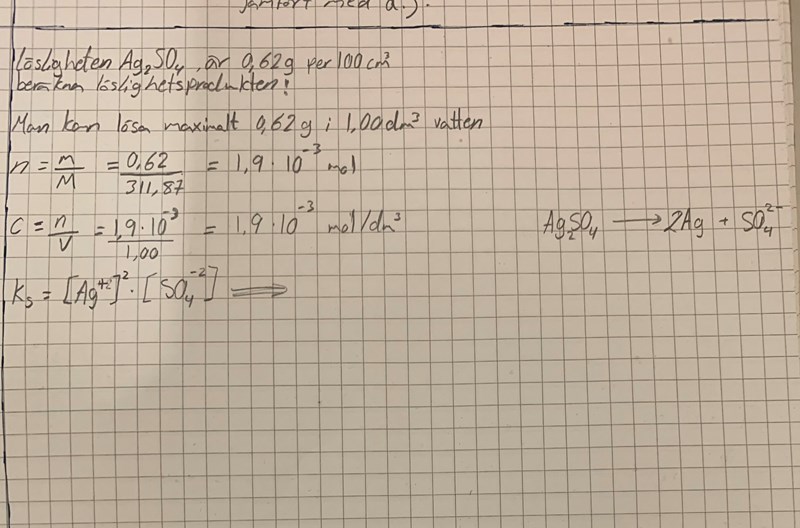 jämfört med a.).
Lösligheten Ag₂SO₄ är 0,62g per 100cm³
beräkna löslighetsprodukten!
Man kan lösa maximalt 0,62g i 1,00dm³ vatten
n = m/M = 0,62/311,87 = 1,9 · 10⁻³ mol
C = n/V = 1,9·10⁻³/1,00 = 1,9 · 10⁻³ mol/dm³
Ag₂SO₄ → 2Ag + SO₄²⁻
Ks = [Ag⁺]² · [SO₄⁻²] ⇒